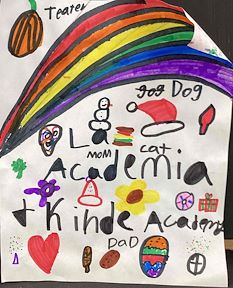 Teater
dog Dog
La
MOM cat
Academia
+ Kinde Academ
DaD